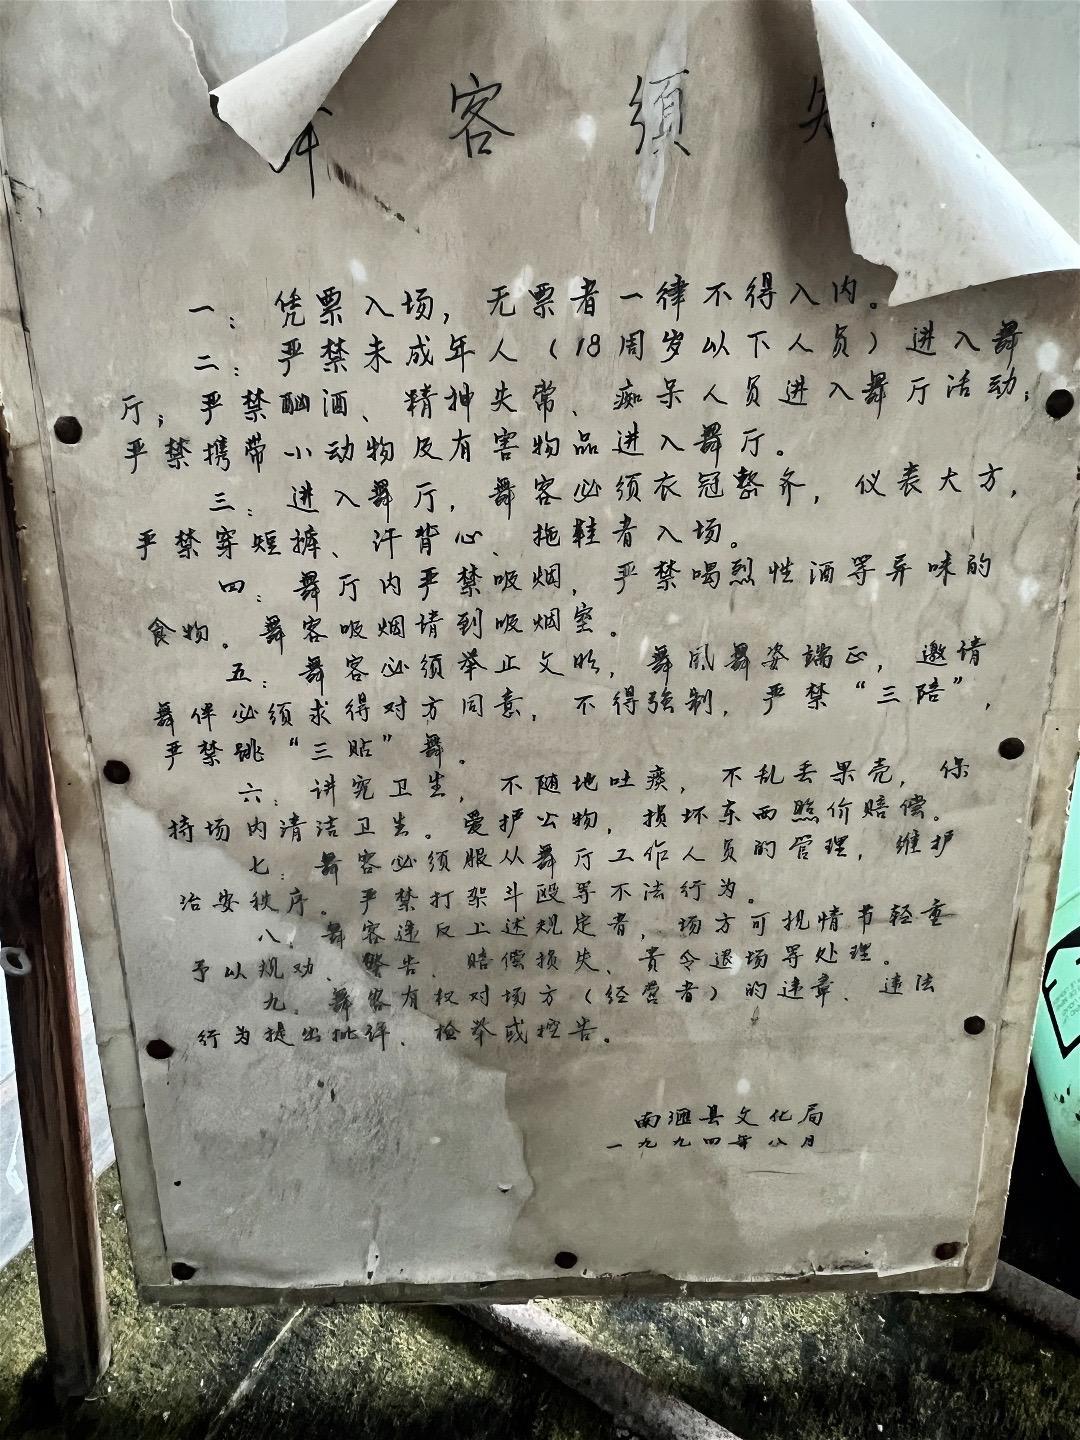 客须
一：凭票入场，无票者一律不得入内。
二：严禁未成年人（18周岁以下人员）进入舞
厅；严禁酗酒、精神失常、痴呆人员进入舞厅活动；
严禁携带小动物及有害物品进入舞厅。
三：进入舞厅，舞客必须衣冠整齐，仪表大方，
严禁穿短裤、汗背心、拖鞋者入场。
四：舞厅内严禁吸烟，严禁喝烈性酒等异味的
食物。舞客吸烟请到吸烟室。
五：舞客必须举止文明，舞风舞姿端正，邀请
舞伴必须求得对方同意，不得强制，严禁“三陪”，
严禁跳“三贴”舞。
六：讲究卫生，不随地吐痰，不乱丢果壳，保
持场内清洁卫生。爱护公物，损坏东西照价赔偿。
七：舞客必须服从舞厅工作人员的管理，维护
治安秩序。严禁打架斗殴等不法行为。
八：舞客违反上述规定者，场方可视情节轻重
予以规劝、警告、赔偿损失、责令退场等处理。
九：舞客有权对场方（经营者）的违章、违法
行为提出批评、检举或控告。
南汇县文化局
一九九四年八月